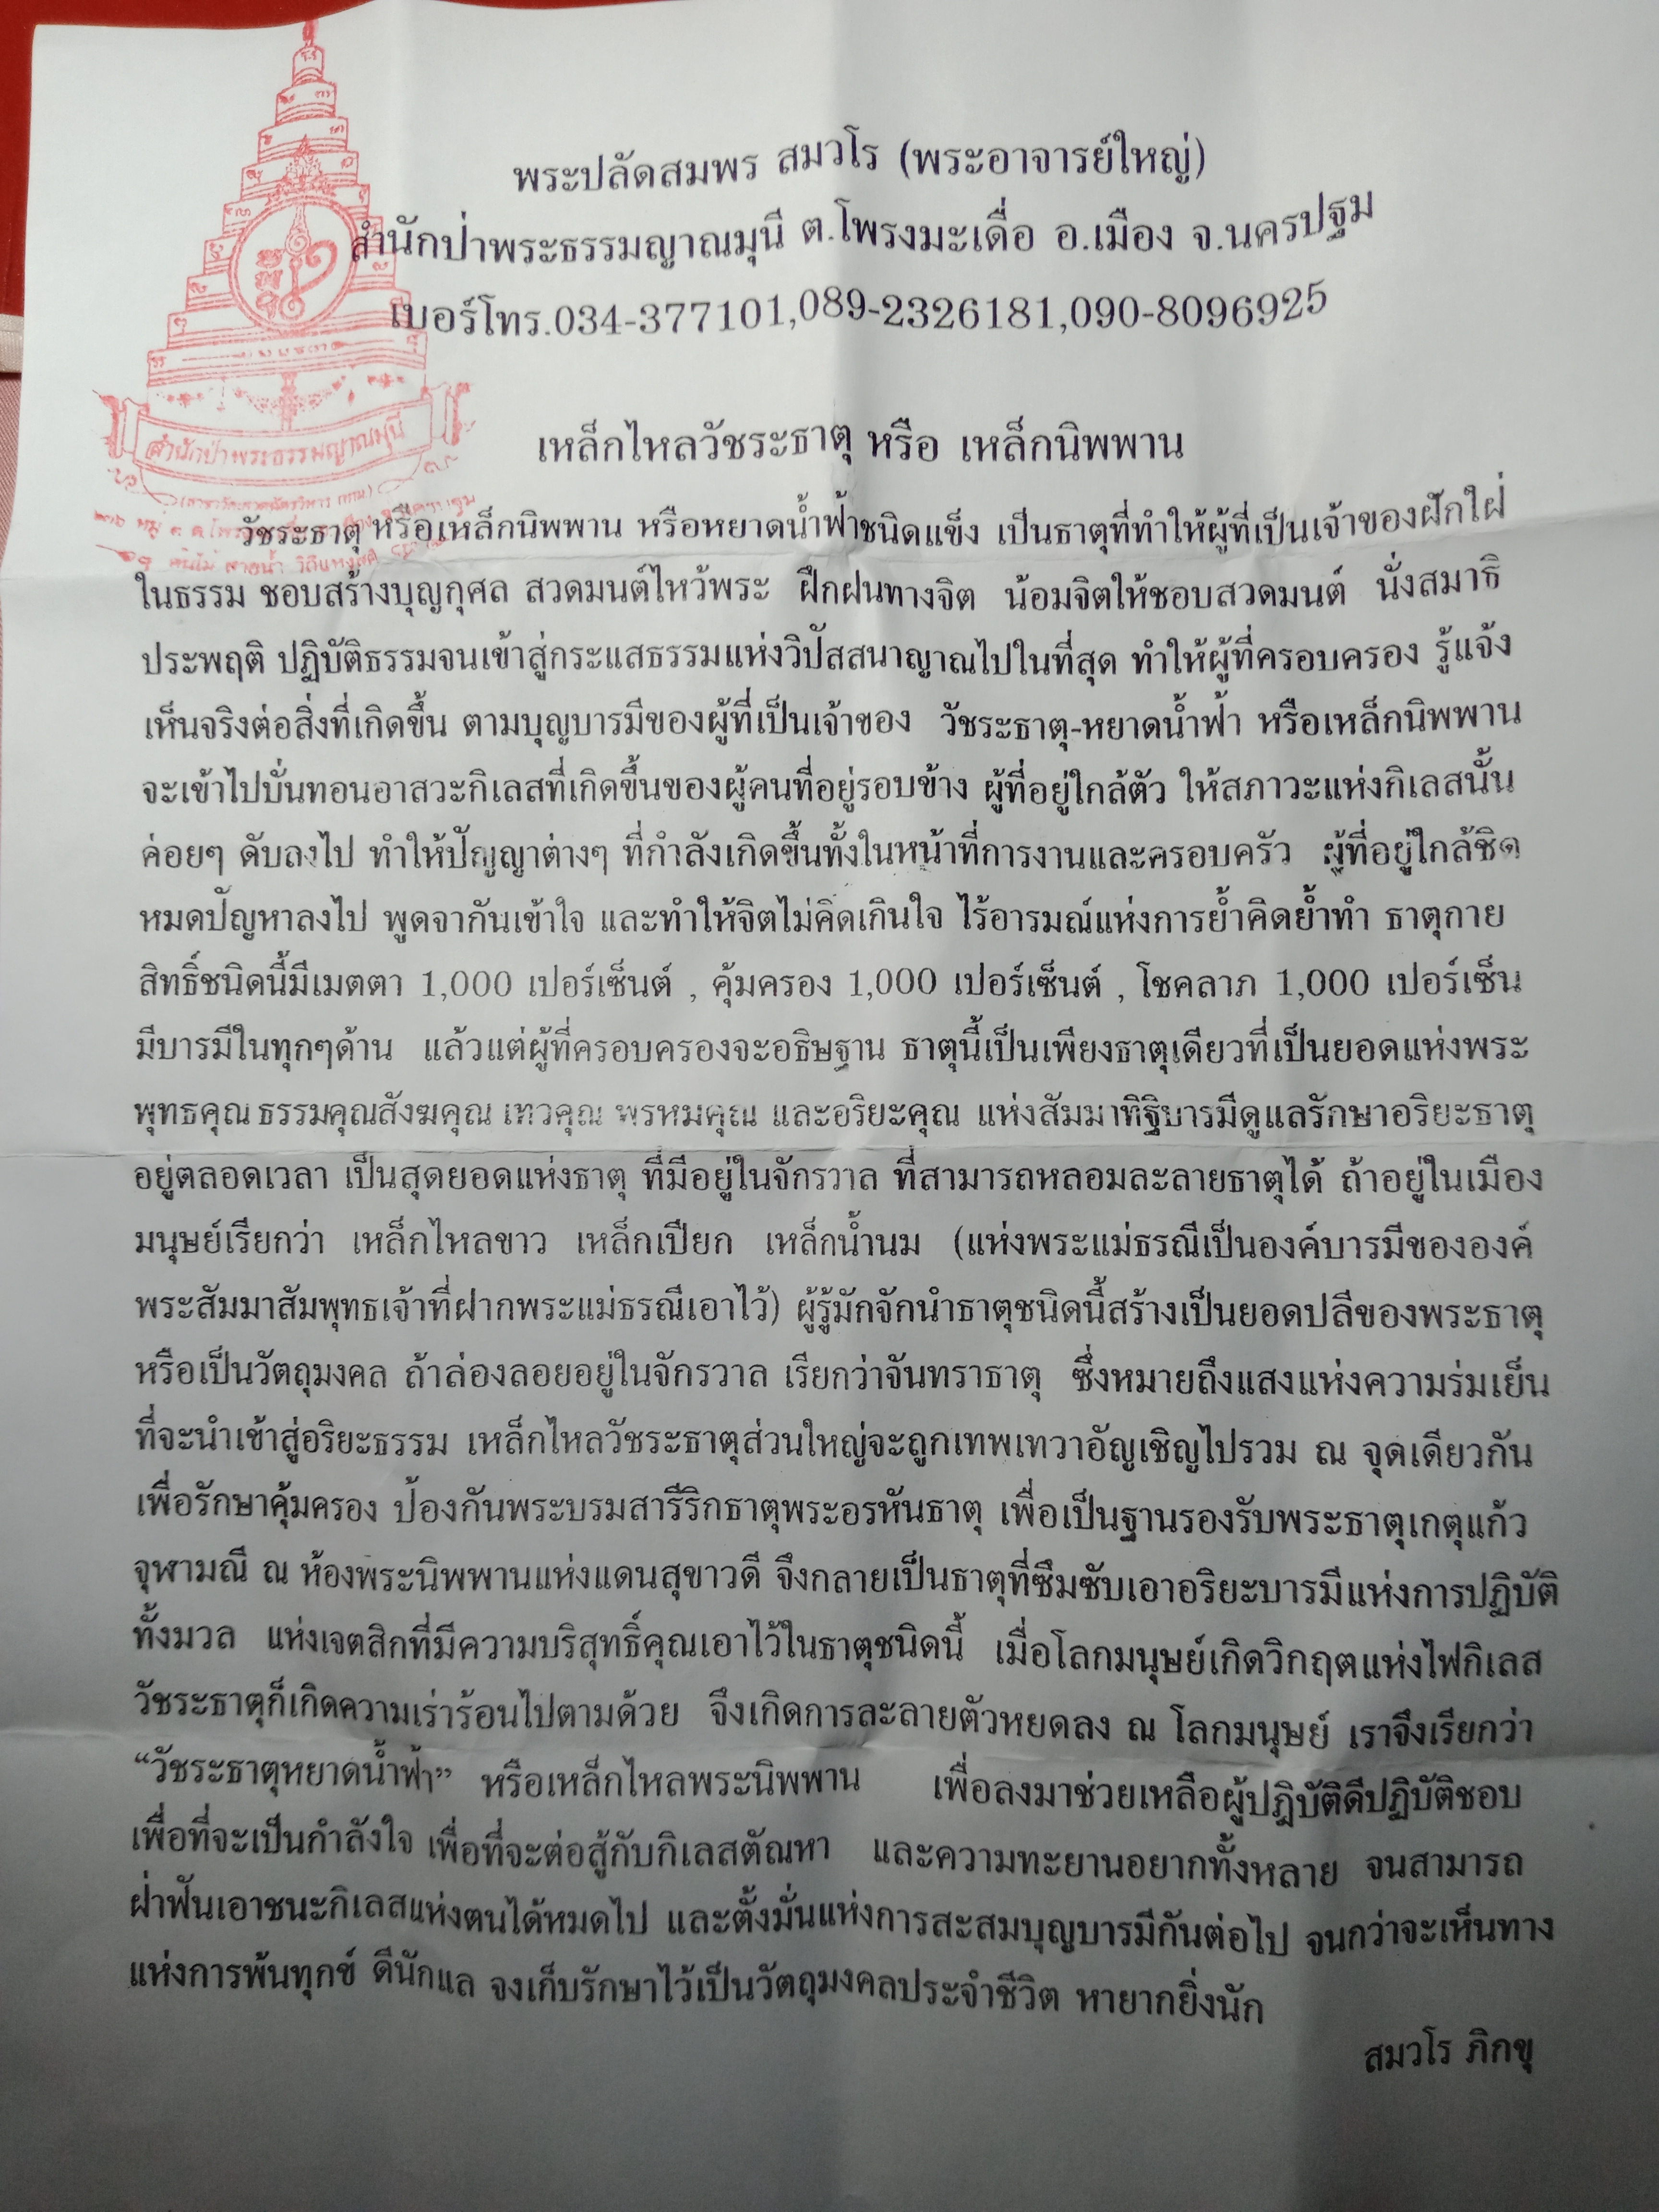 พระปลัดสมพร สมวโร (พระอาจารย์ใหญ่)
สำนักป่าพระธรรมญาณมุนี ต.โพรงมะเดื่อ อ.เมือง จ.นครปฐม
เบอร์โทร.034-377101,089-2326181,090-8096925
สำนักป่าพระธรรมญาณมุนี
เหล็กไหลวัชระธาตุ หรือ เหล็กนิพพาน
วัชระธาตุ หรือเหล็กนิพพาน หรือหยาดน้ำฟ้าชนิดแข็ง เป็นธาตุที่ทำให้ผู้ที่เป็นเจ้าของฝักใฝ่
ในธรรม ชอบสร้างบุญกุศล สวดมนต์ไหว้พระ ฝึกฝนทางจิต น้อมจิตให้ชอบสวดมนต์ นั่งสมาธิ
ประพฤติ ปฏิบัติธรรมจนเข้าสู่กระแสธรรมแห่งวิปัสสนาญาณไปในที่สุด ทำให้ผู้ที่ครอบครอง รู้แจ้ง
เห็นจริงต่อสิ่งที่เกิดขึ้น ตามบุญบารมีของผู้ที่เป็นเจ้าของ วัชระธาตุ-หยาดน้ำฟ้า หรือเหล็กนิพพาน
จะเข้าไปบั่นทอนอาสวะกิเลสที่เกิดขึ้นของผู้คนที่อยู่รอบข้าง ผู้ที่อยู่ใกล้ตัว ให้สภาวะแห่งกิเลสนั้น
ค่อยๆ ดับลงไป ทำให้ปัญญาต่างๆ ที่กำลังเกิดขึ้นทั้งในหน้าที่การงานและครอบครัว ผู้ที่อยู่ใกล้ชิด
หมดปัญหาลงไป พูดจากันเข้าใจ และทำให้จิตไม่คิดเกินใจ ไร้อารมณ์แห่งการย้ำคิดย้ำทำ ธาตุกาย
สิทธิ์ชนิดนี้มีเมตตา 1,000 เปอร์เซ็นต์ , คุ้มครอง 1,000 เปอร์เซ็นต์ , โชคลาภ 1,000 เปอร์เซ็น
มีบารมีในทุกๆด้าน แล้วแต่ผู้ที่ครอบครองจะอธิษฐาน ธาตุนี้เป็นเพียงธาตุเดียวที่เป็นยอดแห่งพระ
พุทธคุณ ธรรมคุณสังฆคุณ เทวคุณ พรหมคุณ และอริยะคุณ แห่งสัมมาทิฐิบารมีดูแลรักษาอริยะธาตุ
อยู่ตลอดเวลา เป็นสุดยอดแห่งธาตุ ที่มีอยู่ในจักรวาล ที่สามารถหลอมละลายธาตุได้ ถ้าอยู่ในเมือง
มนุษย์เรียกว่า เหล็กไหลขาว เหล็กเปียก เหล็กน้ำนม (แห่งพระแม่ธรณีเป็นองค์บารมีขององค์
พระสัมมาสัมพุทธเจ้าที่ฝากพระแม่ธรณีเอาไว้) ผู้รู้มักจักนำธาตุชนิดนี้สร้างเป็นยอดปลีของพระธาตุ
หรือเป็นวัตถุมงคล ถ้าล่องลอยอยู่ในจักรวาล เรียกว่าจันทราธาตุ ซึ่งหมายถึงแสงแห่งความร่มเย็น
ที่จะนำเข้าสู่อริยะธรรม เหล็กไหลวัชระธาตุส่วนใหญ่จะถูกเทพเทวาอัญเชิญไปรวม ณ จุดเดียวกัน
เพื่อรักษาคุ้มครอง ป้องกันพระบรมสารีริกธาตุพระอรหันธาตุ เพื่อเป็นฐานรองรับพระธาตุเกตุแก้ว
จุฬามณี ณ ห้องพระนิพพานแห่งแดนสุขาวดี จึงกลายเป็นธาตุที่ซึมซับเอาอริยะบารมีแห่งการปฏิบัติ
ทั้งมวล แห่งเจตสิกที่มีความบริสุทธิ์คุณเอาไว้ในธาตุชนิดนี้ เมื่อโลกมนุษย์เกิดวิกฤตแห่งไฟกิเลส
วัชระธาตุก็เกิดความเร่าร้อนไปตามด้วย จึงเกิดการละลายตัวหยดลง ณ โลกมนุษย์ เราจึงเรียกว่า
“วัชระธาตุหยาดน้ำฟ้า” หรือเหล็กไหลพระนิพพาน เพื่อลงมาช่วยเหลือผู้ปฏิบัติดีปฏิบัติชอบ
เพื่อที่จะเป็นกำลังใจ เพื่อที่จะต่อสู้กับกิเลสตัณหา และความทะยานอยากทั้งหลาย จนสามารถ
ฝ่าฟันเอาชนะกิเลสแห่งตนได้หมดไป และตั้งมั่นแห่งการสะสมบุญบารมีกันต่อไป จนกว่าจะเห็นทาง
แห่งการพ้นทุกข์ ดีนักแล จงเก็บรักษาไว้เป็นวัตถุมงคลประจำชีวิต หายากยิ่งนัก
สมวโร ภิกขุ